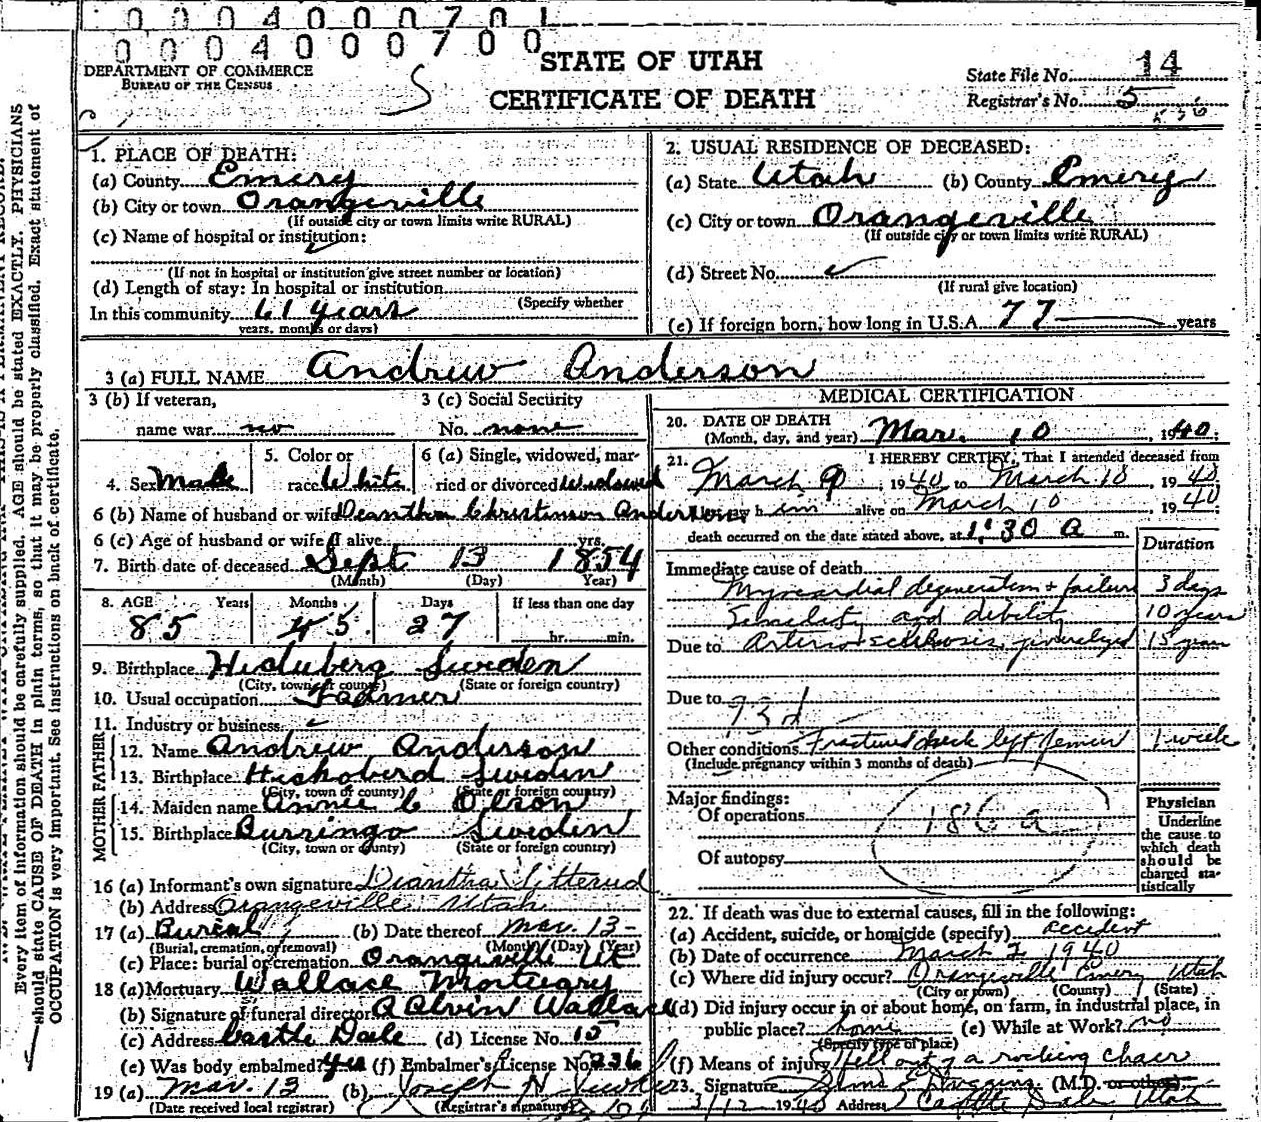 0 0 0 4 0 0 0 7 0 1
0 0 0 4 0 0 0 7 0 0
STATE OF UTAH
CERTIFICATE OF DEATH
DEPARTMENT OF COMMERCE
BUREAU OF THE CENSUS
State File No. 14
Registrar's No. 5
Every item of information should be carefully supplied. AGE should be stated EXACTLY. PHYSICIANS
should state CAUSE OF DEATH in plain terms, so that it may be properly classified. Exact statement of
OCCUPATION is very important. See instructions on back of certificate.
1. PLACE OF DEATH:
(a) County Emery
(b) City or town Orangeville
(If outside city or town limits write RURAL)
(c) Name of hospital or institution:
(If not in hospital or institution give street number or location)
(d) Length of stay: In hospital or institution
(Specify whether
In this community 61 years
years, months or days)
2. USUAL RESIDENCE OF DECEASED:
(a) State Utah (b) County Emery
(c) City or town Orangeville
(If outside city or town limits write RURAL)
(d) Street No.
(If rural give location)
(e) If foreign born, how long in U.S.A. 77 years
3 (a) FULL NAME Andrew Anderson
3 (b) If veteran, 3 (c) Social Security
name war no No. none
4. Sex Male 5. Color or race White 6 (a) Single, widowed, mar-
ried or divorced Widowed
6 (b) Name of husband or wife Deantha Christinson Anderson
6 (c) Age of husband or wife if alive yrs.
7. Birth date of deceased Sept 13 1854
(Month) (Day) Year)
8. AGE Years Months Days If less than one day
85 5 27 hr. min.
9. Birthplace Sweden
(City, town or county) (State or foreign country)
10. Usual occupation Farmer
11. Industry or business
FATHER
12. Name Andrew Anderson
13. Birthplace Sweden
(City, town or county) (State or foreign country)
MOTHER
14. Maiden name Annie C Olson
15. Birthplace Burringo Sweden
(City, town or county) (State or foreign country)
16 (a) Informant's own signature Diantha
(b) Address Orangeville Utah
17 (a) Burial (b) Date thereof Mar. 13-
(Burial, cremation, or removal) (Month) (Day) (Year)
(c) Place: burial or cremation Orangeville Ut
18 (a) Mortuary Wallace Mortuary
(b) Signature of funeral director A Alvin Wallace
(c) Address Castle Dale (d) License No. 15
(e) Was body embalmed? yes (f) Embalmer's License No. 236
19 (a) Mar. 13 (b) Joseph H
(Date received local registrar) (Registrar's signature)
MEDICAL CERTIFICATION
20. DATE OF DEATH
(Month, day, and year) Mar. 10, 1940:
21. I HEREBY CERTIFY, That I attended deceased from
March 9, 1940, to March 10, 1940
I last saw him alive on March 10, 1940
death occurred on the date stated above, at 1:30 a m.
Duration
Immediate cause of death
Myocardial degeneration + failure 3 days
Senility and debility 10 years
Due to Arterio-sclerosis, generalized 15 years
Due to
93d
Other conditions Fractured neck left femur 1 week
(Include pregnancy within 3 months of death)
Major findings:
Of operations
186a
Of autopsy
Physician
Underline
the cause to
which death
should be
charged sta-
tistically
22. If death was due to external causes, fill in the following:
(a) Accident, suicide, or homicide (specify) accident
(b) Date of occurrence March 2, 1940
(c) Where did injury occur? Orangeville Emery Utah
(City or town) (County) (State)
(d) Did injury occur in or about home, on farm, in industrial place, in
public place? home (e) While at Work? no
(Specify type of place)
(f) Means of injury Fell out of a rocking chair
23. Signature Duggins (M.D. or other)
3/12 1940 Address Castle Dale, Utah